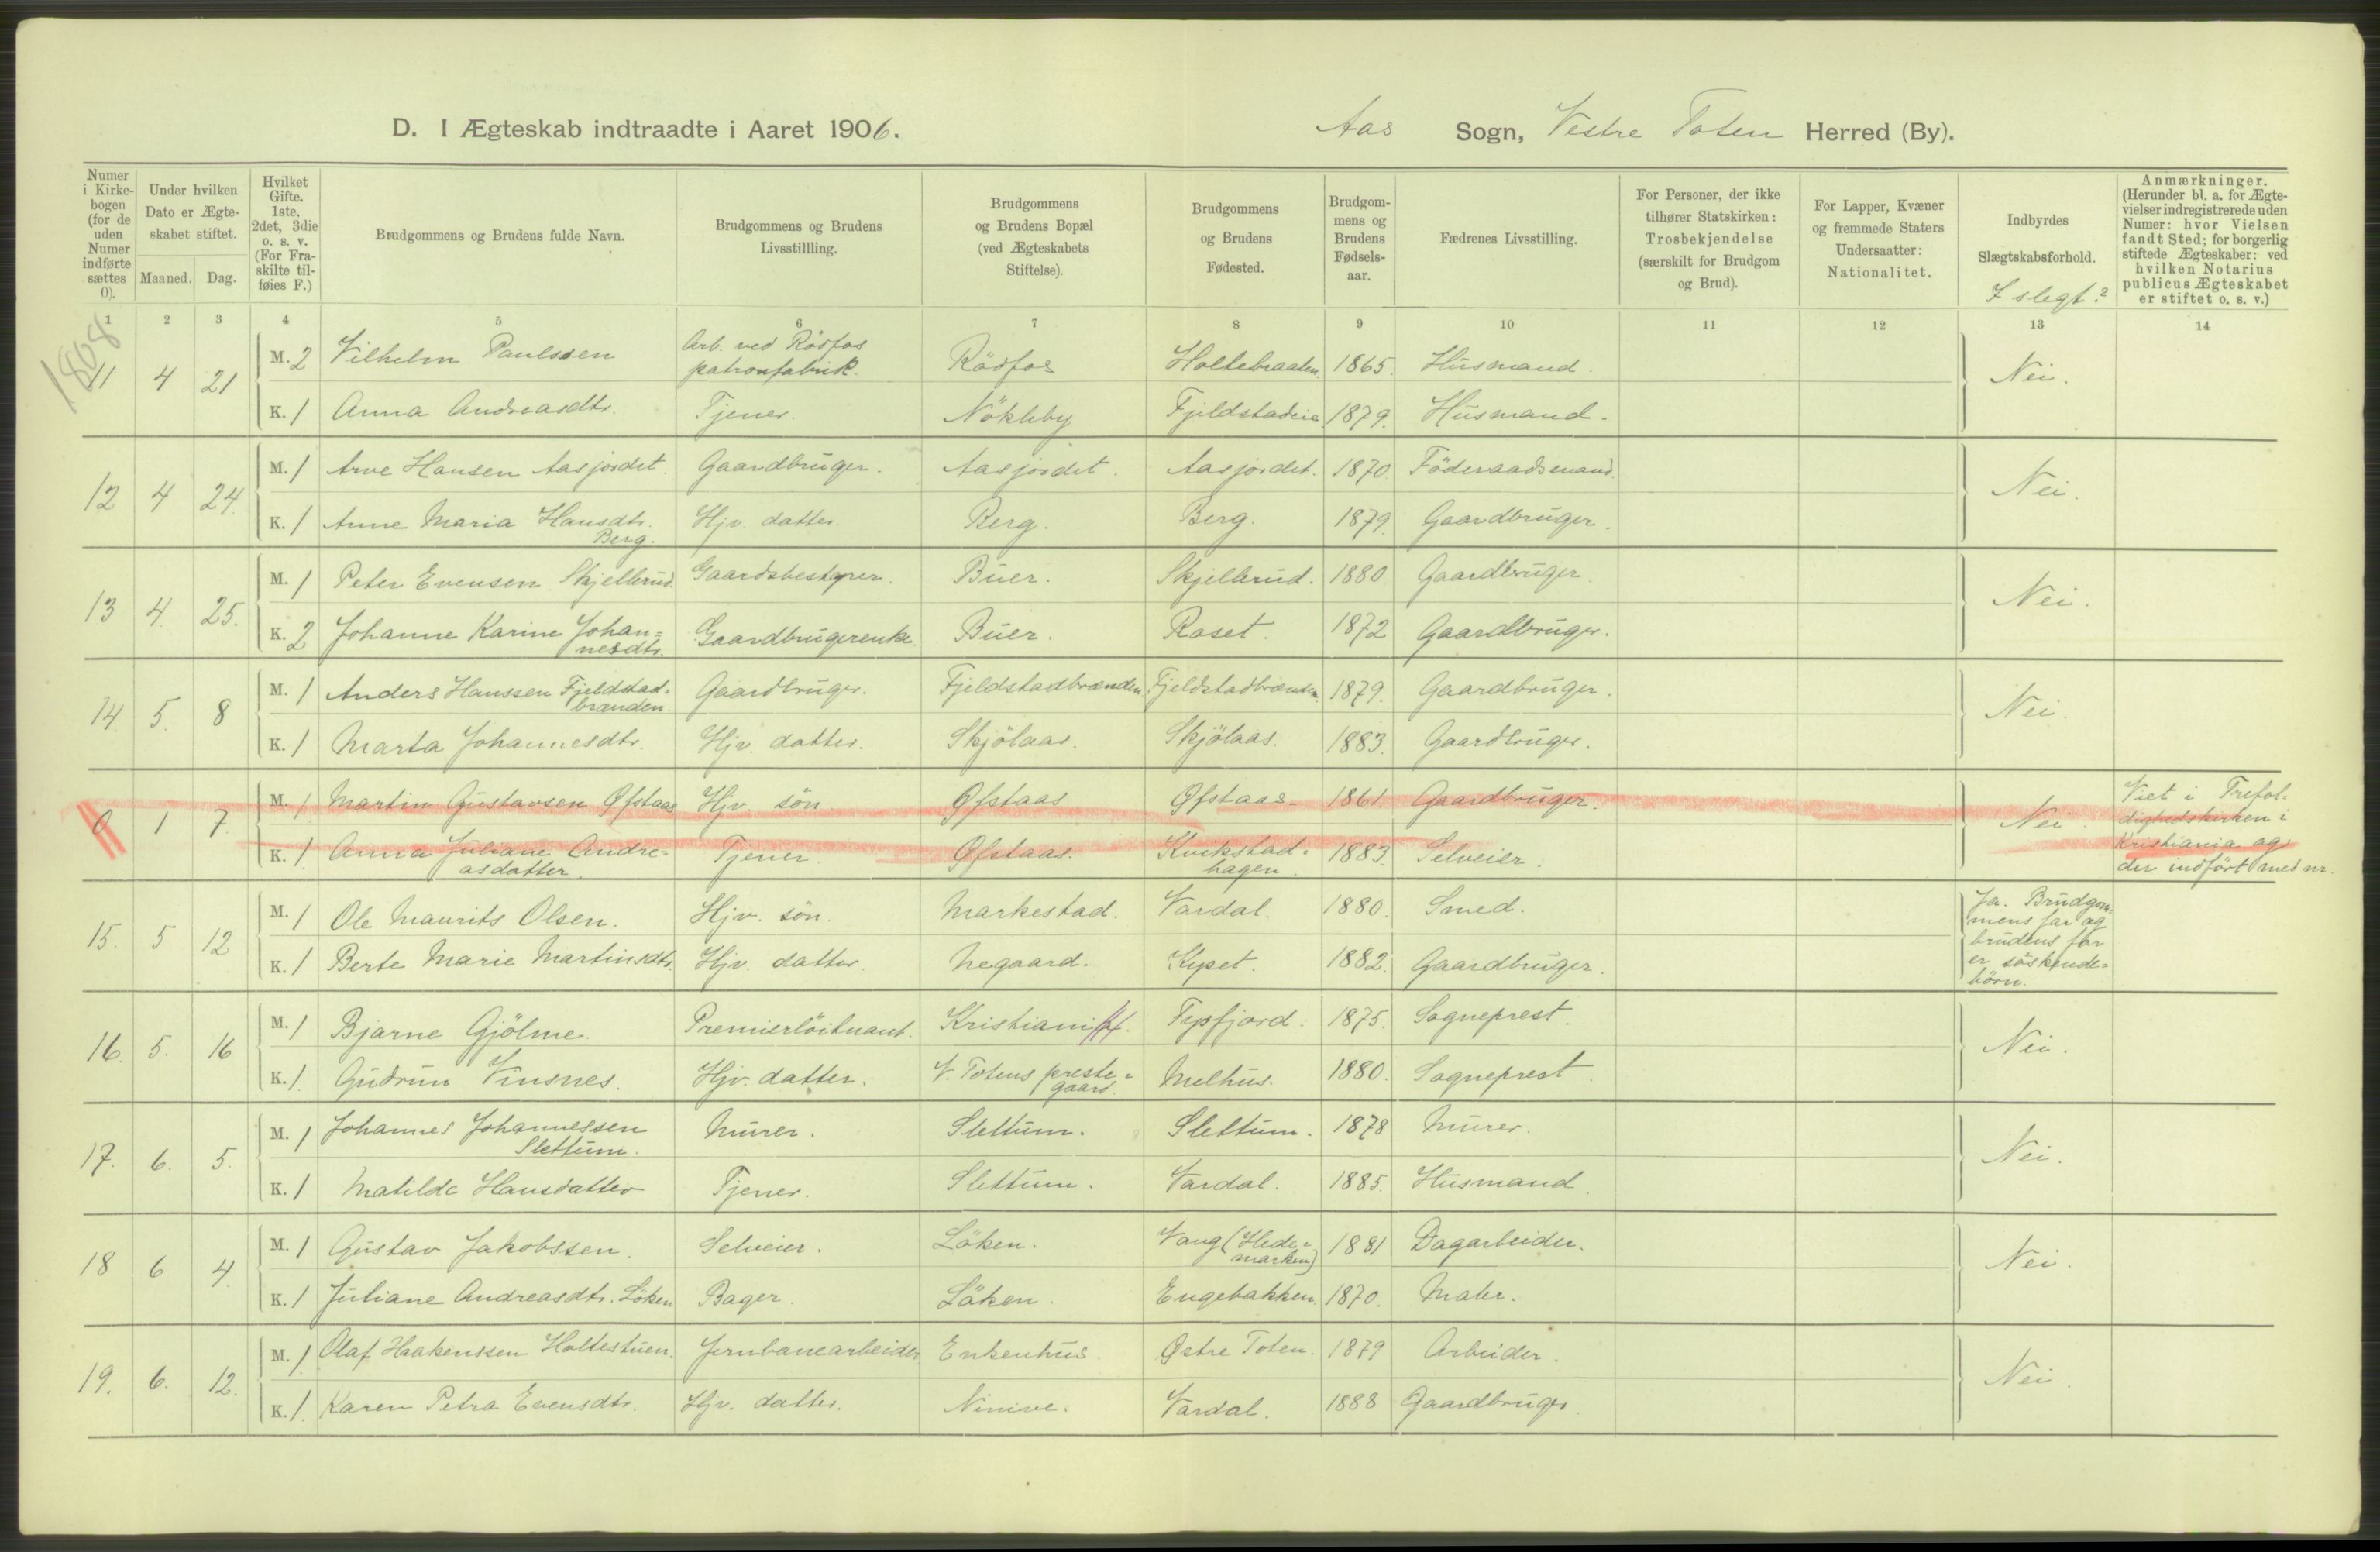 D. I Ægteskab indtraadte i Aaret 1906. Aas Sogn, Vestre Toten Herred (By).
Numer i Kirkebogen (for de uden Numer indførte sættes 0).
Under hvilken Dato er Ægteskabet stiftet.
Maaned. Dag.
Hvilket Gifte. 1ste, 2det, 3die o. s. v. (For Fraskilte tilføies F.)
Brudgommens og Brudens fulde Navn.
Brudgommens og Brudens Livsstillling.
Brudgommens og Brudens Bopæl (ved Ægteskabets Stiftelse).
Brudgommens og Brudens Fødested.
Brudgommens og Brudens Fødselsaar.
Fædrenes Livsstilling.
For Personer, der ikke tilhører Statskirken: Trosbekjendelse (særskilt for Brudgom og Brud).
For Lapper, Kvæner og fremmede Staters Undersaatter: Nationalitet.
Indbyrdes Slægtskabsforhold.
I slegt?
Anmærkninger. (Herunder bl. a. for Ægtevielser indregistrerede uden Numer: hvor Vielsen fandt Sted; for borgerlig stiftede Ægteskaber: ved hvilken Notarius publicus Ægteskabet er stiftet o. s. v.)
1 2 3 4 5 6 7 8 9 10 11 12 13 14
1808
11 4 21 M. 2 Vilhelm Paulssen Arb. ved Rösfos patronfabrik. Rödfos Holtebraaten. 1865. Husmand. Nei.
K. 1 Anna Andreasdtr. Tjener. Nökleby Fjeldstadeie 1879. Husmand.
12 4 24. M. 1 Arve Hansen Aasjordet. Gaardbruger. Aasjordet. Aasjordet. 1870. Föderaadsmand. Nei.
K. 1 Anne Maria Hansdtr. Berg. Hjv. datter. Berg. Berg. 1879. Gaardbruger.
13 4. 25. M. 1 Peter Evensen Skjellerud Gaardsbestyrer. Buer. Skjellerud. 1880 Gaardbruger Nei.
K. 2 Johanne Karine Johannesdtr. Gaardbrugerenke. Buer. Raset. 1872 Gaardbruger.
14. 5. 8 M. 1 Anders Hanssen Fjeldstadbrænden. Gaardbruger. Fjeldstadbrænden Fjeldstadbrænden. 1879. Gaardbruger. Nei.
K. 1 Marta Johannesdtr. Hjv. datter. Skjölaas. Skjölaas. 1883. Gaardbruger.
0 1 7. M. 1 Martin Gustavsen Øfstaas Hjv. sön. Øfstaas Øfstaas. 1861 Gaardbruger. Nei. Viet i Trefoldighedskirken i Kristiania og der indfört med nr.
K. 1 Anna Juliane Andreasdatter. Tjener. Øfstaas. Kvikstadhagen. 1883. Selveier.
15. 5 12 M. 1 Ole Maurits Olsen. Hjv. sön. Markestad. Vardal. 1880. Smed. Ja. Brudgommens far og brudens far er söskendebörn.
K. 1 Berte Marie Martinsdtr. Hjv. datter. Negaard. Kyset. 1882. Gaardbruger.
16. 5. 16 M. 1 Bjarne Gjölme. Premierlöitnant. Kristiania. Fysfjord. 1875. Sogneprest. Nei.
K. 1. Gudrun Vinsnes. Hjv. datter. V. Totens prestegaard. Melhus. 1880. Sogneprest.
17. 6. 5. M. 1 Johannes Johannessen Slettum. Murer. Slettum. Slettum. 1878 Murer. Nei.
K. 1 Matilde Hansdatter Tjener. Slettum. Vardal. 1885. Husmand.
18 6 4 M. 1 Gustav Jakobssen. Selveier. Löken. Vang (Hedemarken) 1881 Dagarbeider. Nei.
K. 1 Juliane Andreasdtr. Löken Bager. Löken. Engebakken. 1870. Maler.
19. 6. 12. M. 1 Olaf Haakenssen Holtestuen. Jernbanearbeider Enkenhus. Østre Toten. 1879 Arbeider. Nei.
K. 1. Karen Petra Evensdtr. Hjv. datter. Ninive. Vardal. 1888 Gaardbruger.